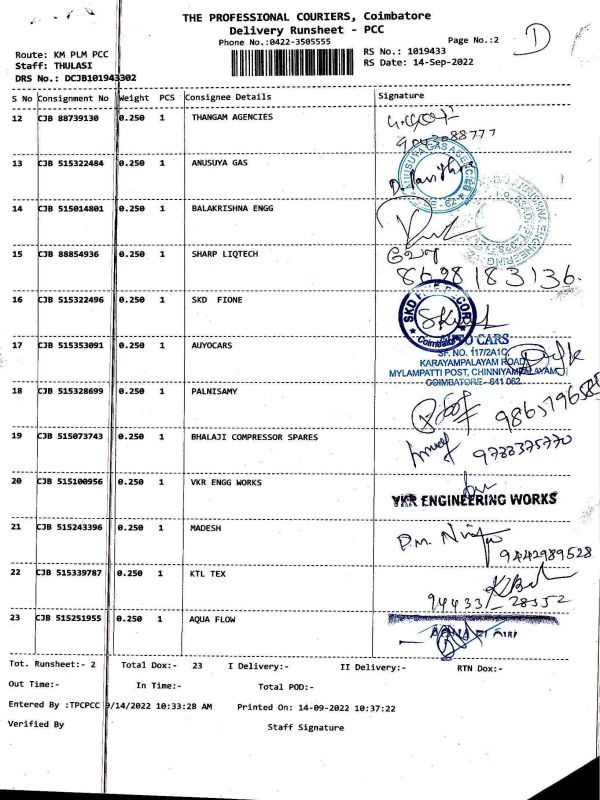 THE PROFESSIONAL COURIERS, Coimbatore
Delivery Runsheet - PCC
Phone No.:0422-3505555
Page No.:2
Route: KM PLM PCC
Staff: THULASI
DRS No.: DCJB101943302
RS No.: 1019433
RS Date: 14-Sep-2022
S No Consignment No Weight PCS Consignee Details Signature
12 CJB 88739130 0.250 1 THANGAM AGENCIES
13 CJB 515322484 0.250 1 ANUSUYA GAS
14 CJB 515014801 0.250 1 BALAKRISHNA ENGG
15 CJB 88854936 0.250 1 SHARP LIQTECH
8698183136.
16 CJB 515322496 0.250 1 SKD FIONE
17 CJB 515353091 0.250 1 AUYOCARS
CARS
SF. NO. 117/2A1C,
KARAYAMPALAYAM ROAD
MYLAMPATTI POST, CHINNIYAMPALAYAM
COIMBATORE - 641 062.
18 CJB 515328699 0.250 1 PALNISAMY
19 CJB 515073743 0.250 1 BHALAJI COMPRESSOR SPARES
9788375770
20 CJB 515100956 0.250 1 VKR ENGG WORKS
VKR ENGINEERING WORKS
21 CJB 515243396 0.250 1 MADESH
9442989528
22 CJB 515339787 0.250 1 KTL TEX
94433/ 28352
23 CJB 515251955 0.250 1 AQUA FLOW
Tot. Runsheet:- 2 Total Dox:- 23 I Delivery:- II Delivery:- RTN Dox:-
Out Time:- In Time:- Total POD:-
Entered By :TPCPCC 9/14/2022 10:33:28 AM Printed On: 14-09-2022 10:37:22
Verified By Staff Signature